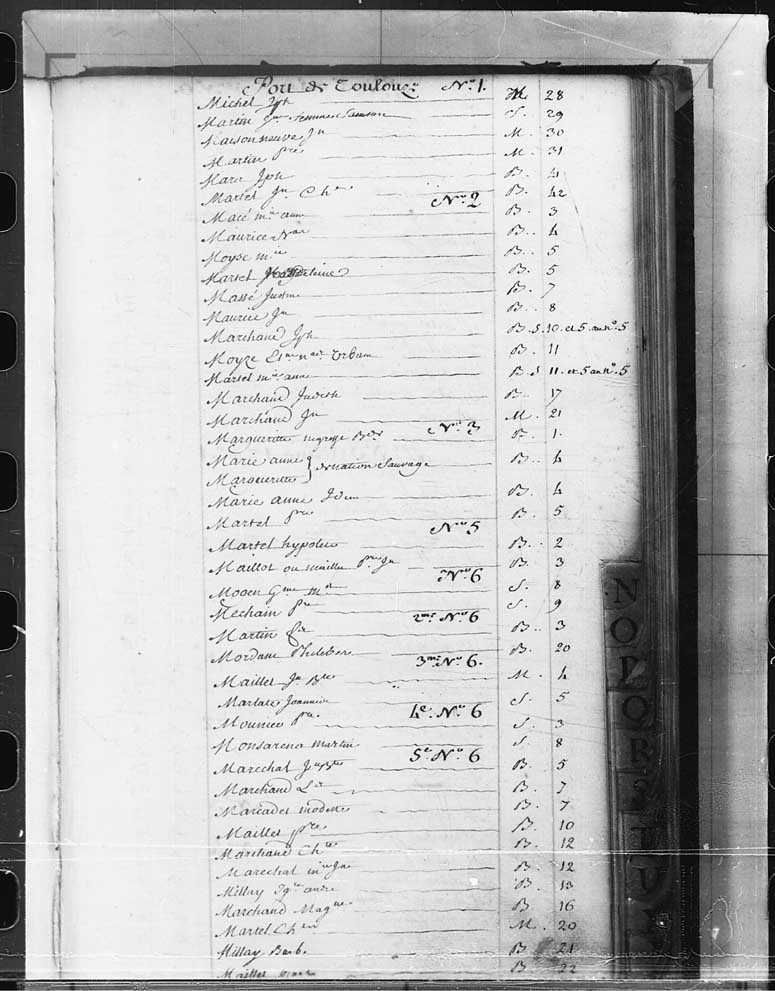 Port de Toulouze Nº 1.
Michel Jph M 28
Martin Jn femme Samson S. 29
Maisonneuve Jn M. 30
Martin Pre M. 31
Mara Jph B. 4
Martel Jn Che B. 42
Nº 2
Macé mie anne B. 3
Maurice B. 4
Moyse mie B. 5
Martel Magdeleine B. 5
Massé Justine B. 7
Maurice Jn B. 8
Marchand Jph B. S. 10. et 5 au nº 5
Moyze Urbain B. 11
Martel mie anne B. S 11. et 5 au nº 5
Marchand Judith B. 17
Marchand Jn M. 21
Nº 3
Marguerite negresse B. 1.
Marie anne } de nation Sauvage B. 4
Marguerite
Marie anne Idem B. 4
Martel Pre B. 5
Nº 5
Martel hypolite B. 2
Maillot ou Pre Jn B. 3
Nº 6
Mooen Gme S. 8
Mechain Pre S. 9
2me Nº 6
Martin B. 3
Mordant Philibert B. 20
3me Nº 6.
Maillet Jn Bte M. 4
Jeannie S. 5
4e. Nº 6
Mounier Pre S. 3
Monsarena martin S. 8
5e Nº 6
Marechal Jn Bte B. 5
Marchand B. 7
Marcadet modeste B. 7
Maillet pre B. 10
Marchand Che B. 12
Marechal mie Jne B. 12
Millay andre B. 13
Marchand Magne B. 16
Martel Chen M. 20
Millay Barb. B 21
Maillet B 22
N
O
P
Q
R